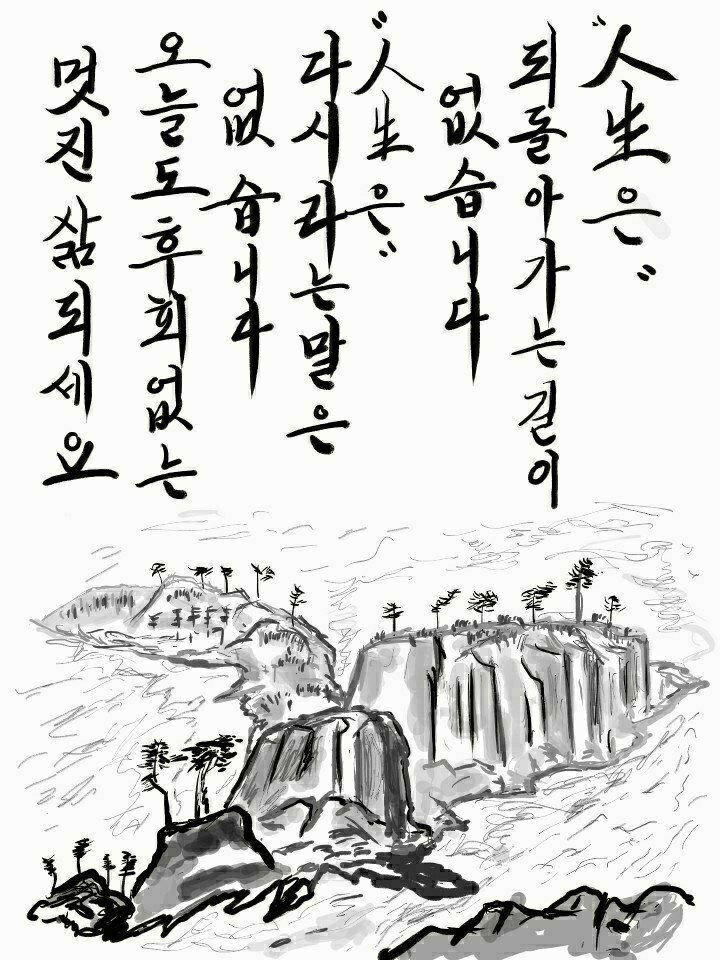 "人生은"
되돌아가는 길이
없습니다
"人生은"
다시라는 말은
없습니다
오늘도 후회없는
멋진 삶 되세요